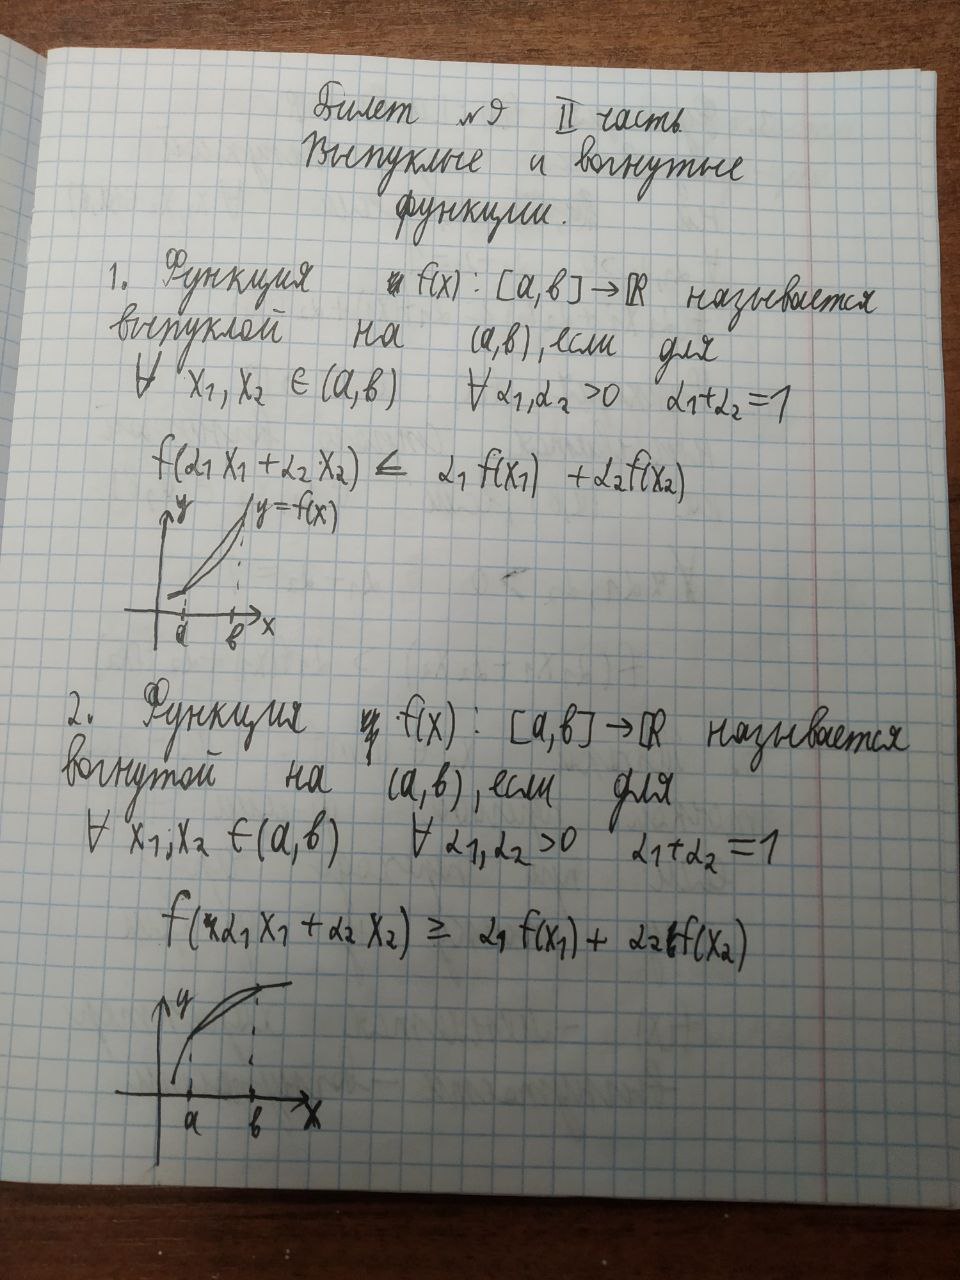 Билет №9 II часть
Выпуклые и вогнутые
функции.
1. Функция f(x) : [a,b] → ℝ называется
выпуклой на (a,b), если для
∀ x₁, x₂ ∈ (a,b) ∀ α₁, α₂ > 0 α₁+α₂ = 1
f(α₁ x₁ + α₂ x₂) ≤ α₁ f(x₁) + α₂ f(x₂)
y y = f(x)
a b x
2. Функция f(x) : [a,b] → ℝ называется
вогнутой на (a,b), если для
∀ x₁, x₂ ∈ (a,b) ∀ α₁, α₂ > 0 α₁+α₂ = 1
f(α₁ x₁ + α₂ x₂) ≥ α₁ f(x₁) + α₂ f(x₂)
y
a b x